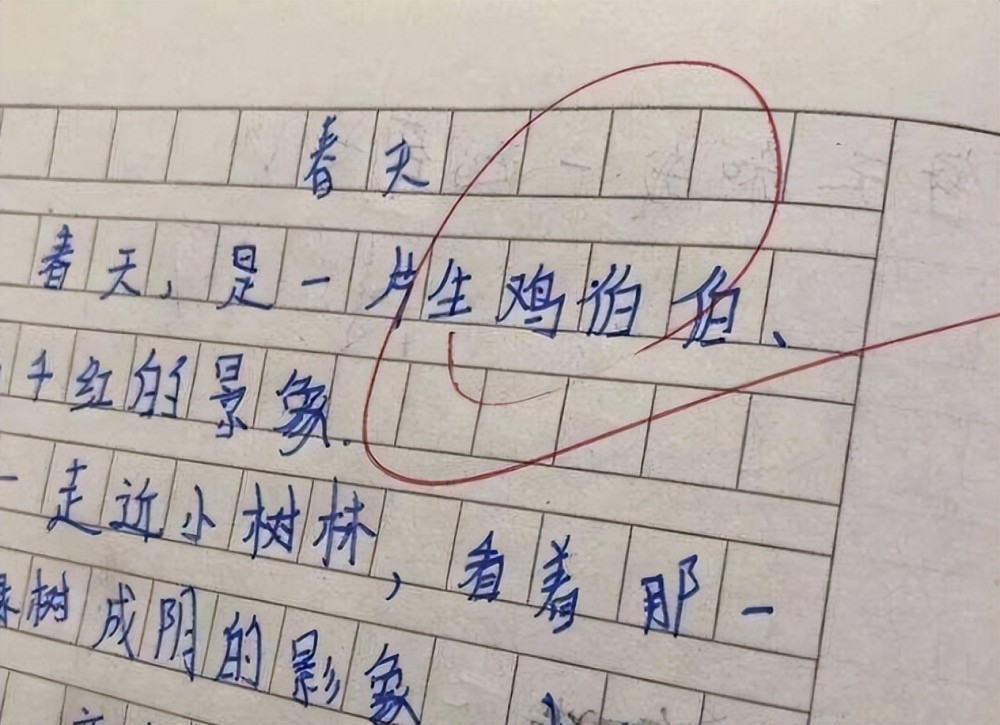 春天
春天，是一片生鸡伯伯、
千红的景象.
一走近小树林，看着那一
树成阴的影象